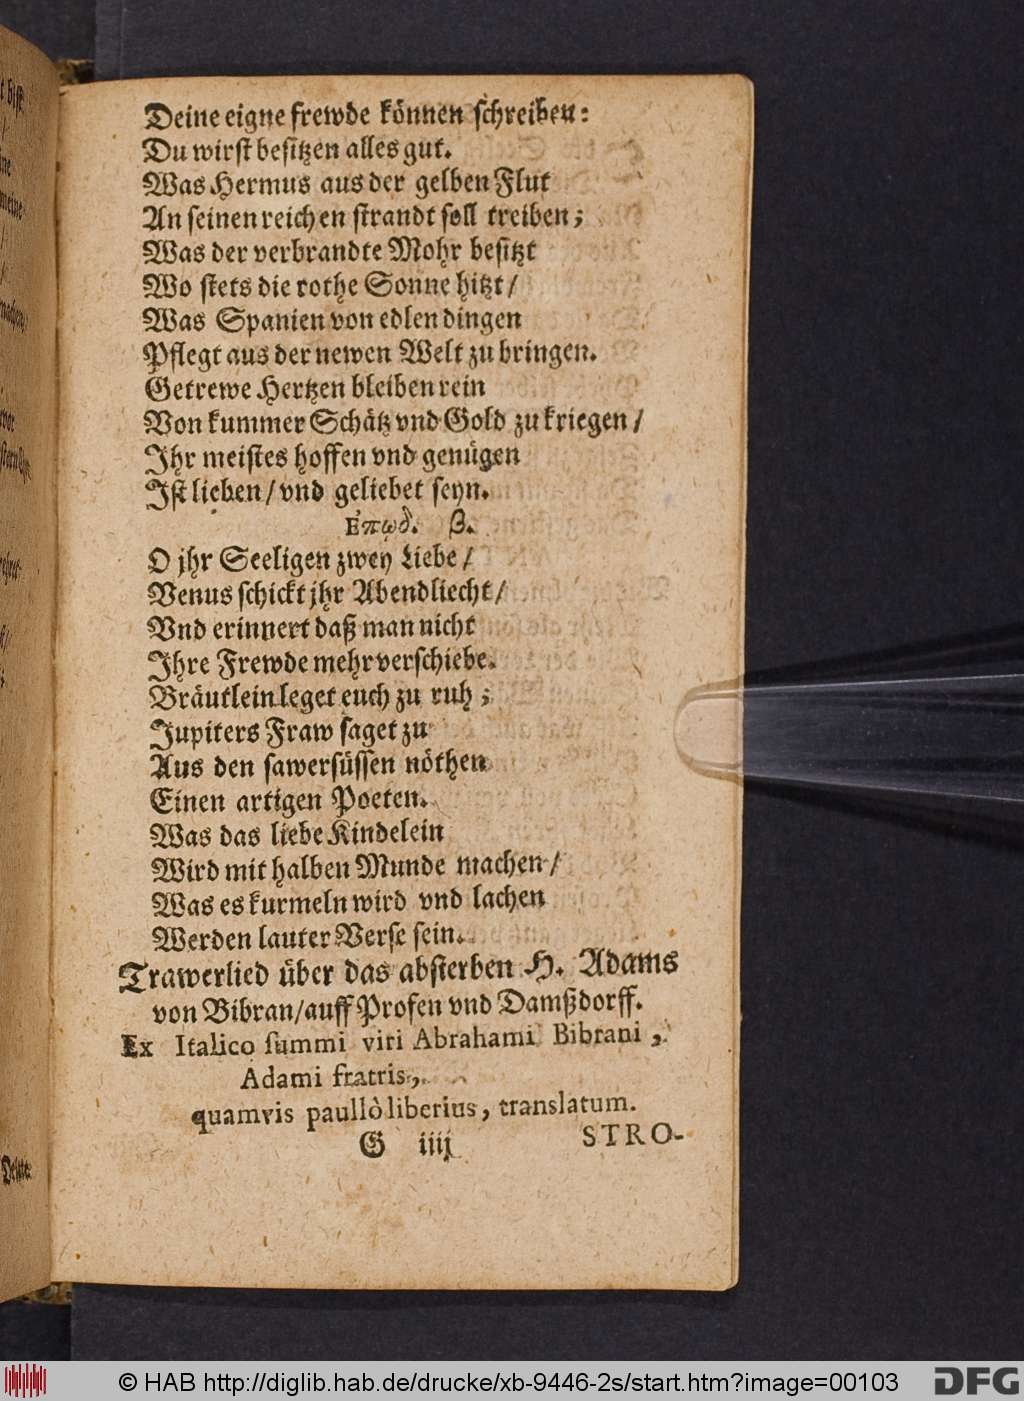 Deine eigne frewde können schreiben:
Du wirst besitzen alles gut.
Was Hermus aus der gelben Flut
An seinen reichen strandt soll treiben;
Was der verbrandte Mohr besitzt
Wo stets die rothe Sonne hitzt/
Was Spanien von edlen dingen
Pflegt aus der newen Welt zu bringen.
Getrewe Hertzen bleiben rein
Von kummer Schätz vnd Gold zu kriegen/
Ihr meistes hoffen vnd genügen
Ist lieben/ vnd geliebet seyn.
Επωδ. β.
O jhr Seeligen zwey Liebe/
Venus schickt jhr Abendliecht/
Vnd erinnert daß man nicht
Ihre Frewde mehr verschiebe.
Bräutlein leget euch zu ruh;
Jupiters Fraw saget zu
Aus den sawersüssen nöthen
Einen artigen Poeten.
Was das liebe Kindelein
Wird mit halben Munde machen/
Was es kurmeln wird vnd lachen
Werden lauter Verse sein.
Trawerlied über das absterben H. Adams
von Bibran/ auff Profen vnd Damßdorff.
Ex Italico summi viri Abrahami Bibrani,
Adami fratris,
quamvis paullò liberius, translatum.
G iiij STRO-
© HAB http://diglib.hab.de/drucke/xb-9446-2s/start.htm?image=00103
DFG